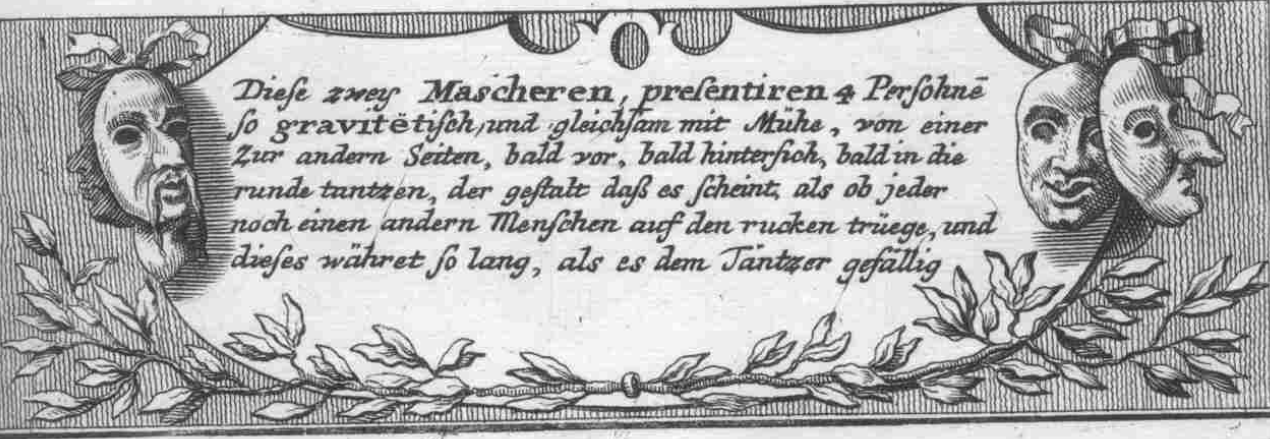 Dieſe zwey Mascheren, preſentiren 4 Perſohnē
ſo gravitëtiſch, und gleichſam mit Mühe, von einer
Zur andern Seiten, bald vor, bald hinterſich, bald in die
runde tantzen, der geſtalt daß es ſcheint, als ob jeder
noch einen andern Menſchen auf den rucken trüege, und
dieſes währet ſo lang, als es dem Täntzer gefällig